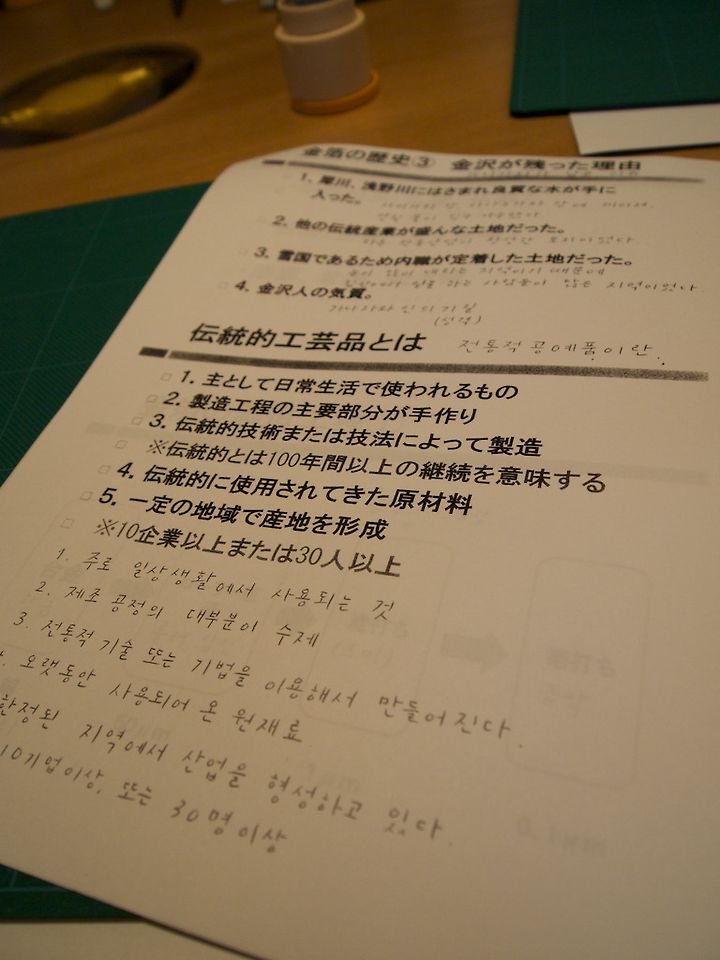 金箔の歴史③ 金沢が残った理由
1、犀川、浅野川にはさまれ良質な水が手に
入った。
2、他の伝統産業が盛んな土地だった。
3、雪国であるため内職が定着した土地だった。
눈이 많이 내리는 지역이기 때문에
일을 하는 사람들이 많은 지역이었다.
4、金沢人の気質。
가나자와 인의 기질
(성격)
伝統的工芸品とは 전통적 공예품이란
□ 1. 主として日常生活で使われるもの
□ 2. 製造工程の主要部分が手作り
□ 3. 伝統的技術または技法によって製造
□ ※伝統的とは100年間以上の継続を意味する
□ 4. 伝統的に使用されてきた原材料
□ 5. 一定の地域で産地を形成
□ ※10企業以上または30人以上
1. 주로 일상생활에서 사용되는 것
2. 제조 공정의 대부분이 수제
3. 전통적 기술 또는 기법을 이용해서 만들어진다.
오랫동안 사용되어 온 원재료
한정된 지역에서 산업을 형성하고 있다.
10기업이상, 또는 30명이상